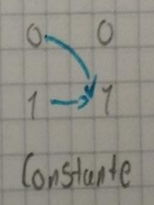 0 0
1 1
Constante